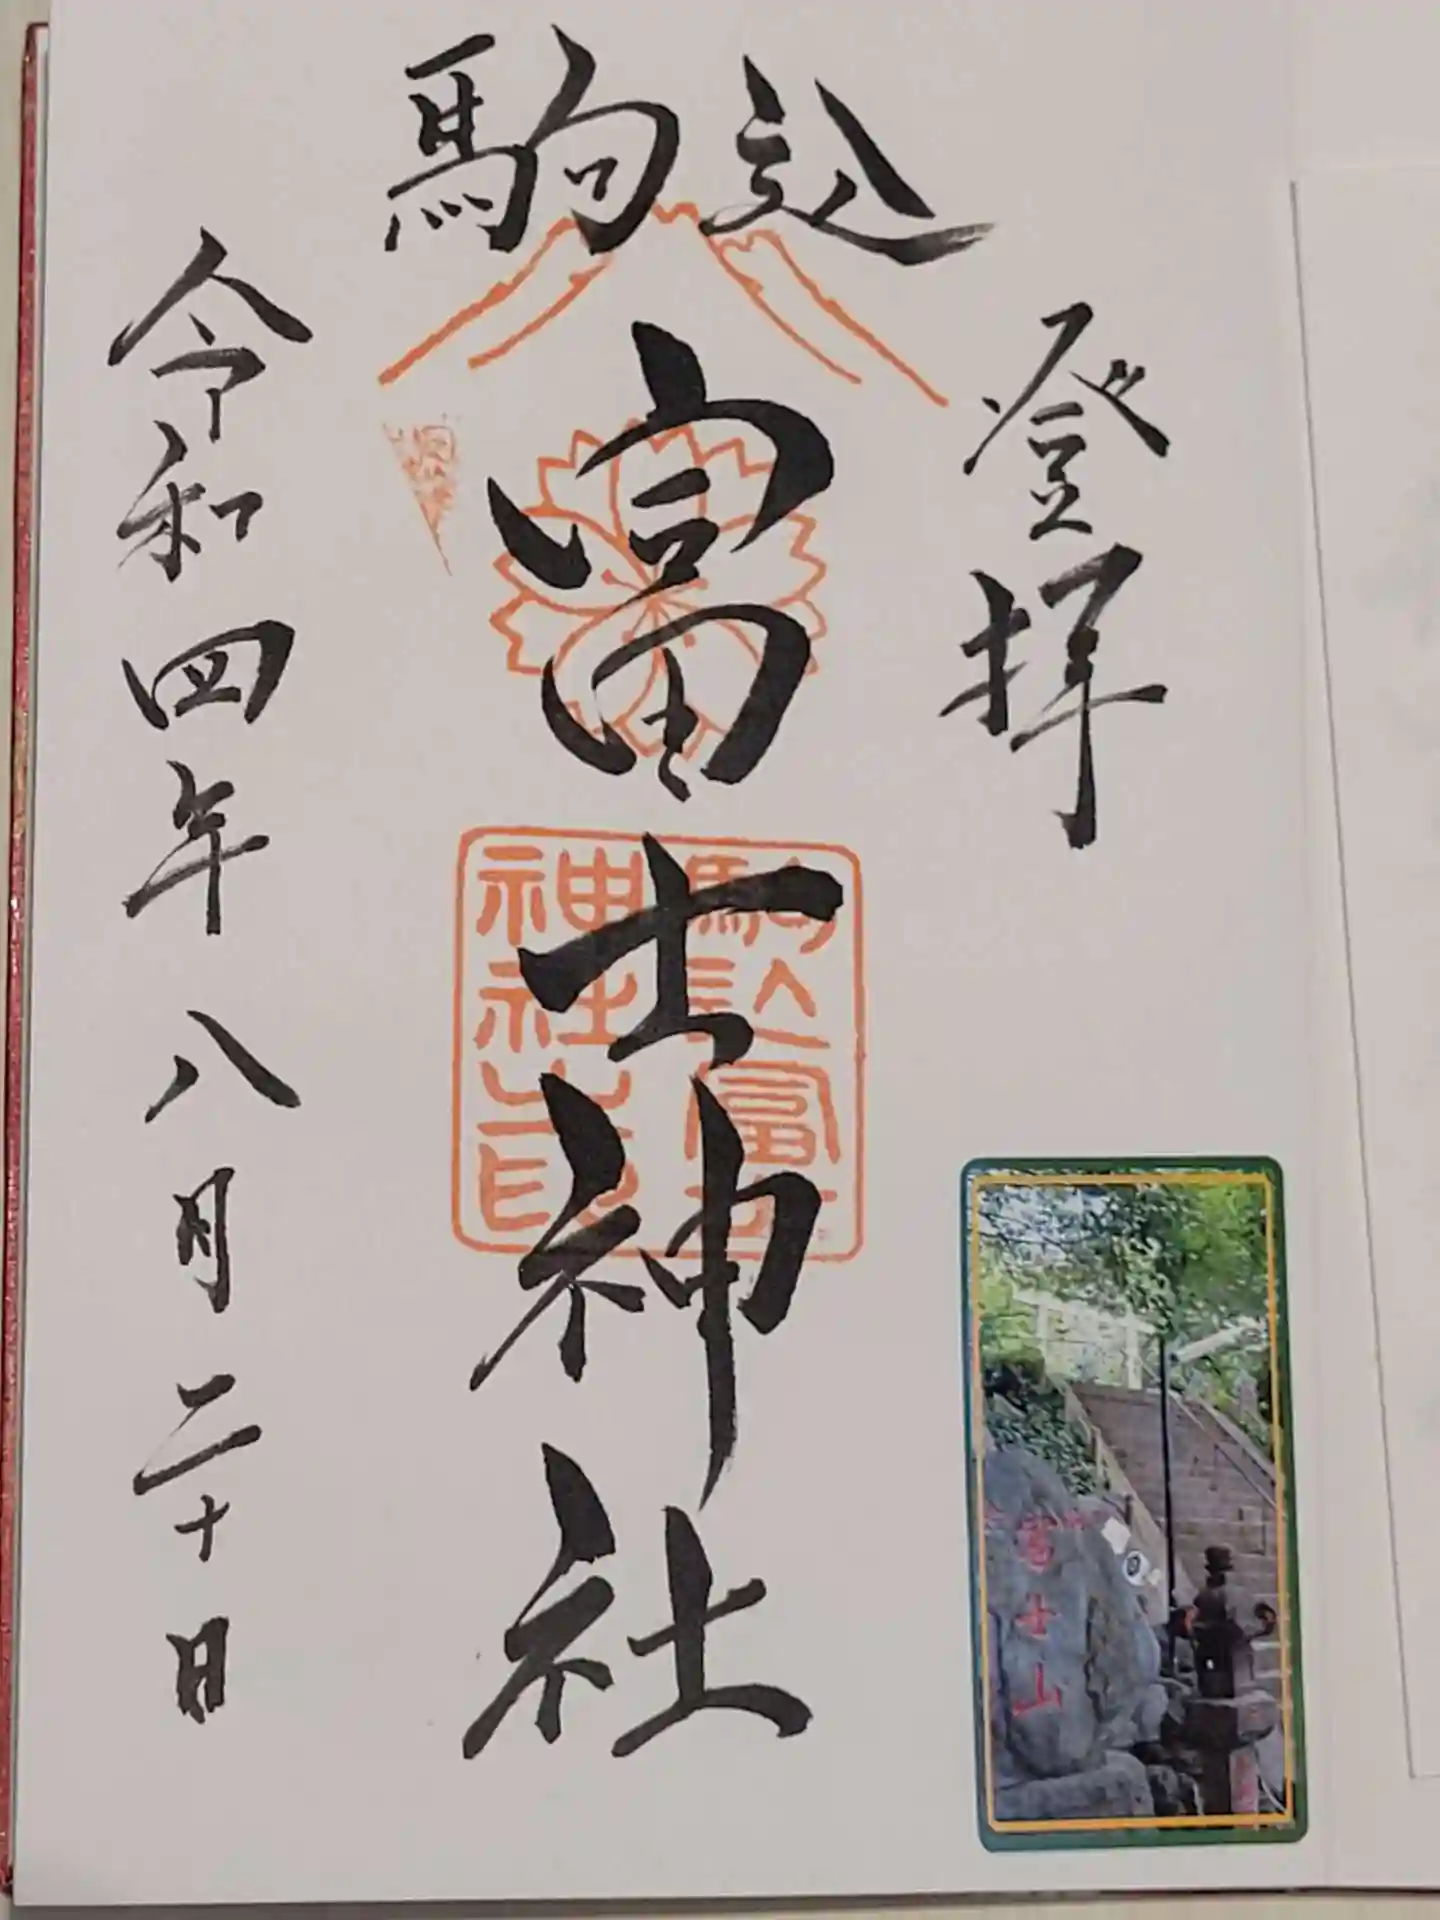 駒込
登拝
富士神社
令和四年八月二十日
駒込富士
神社之印
富士山